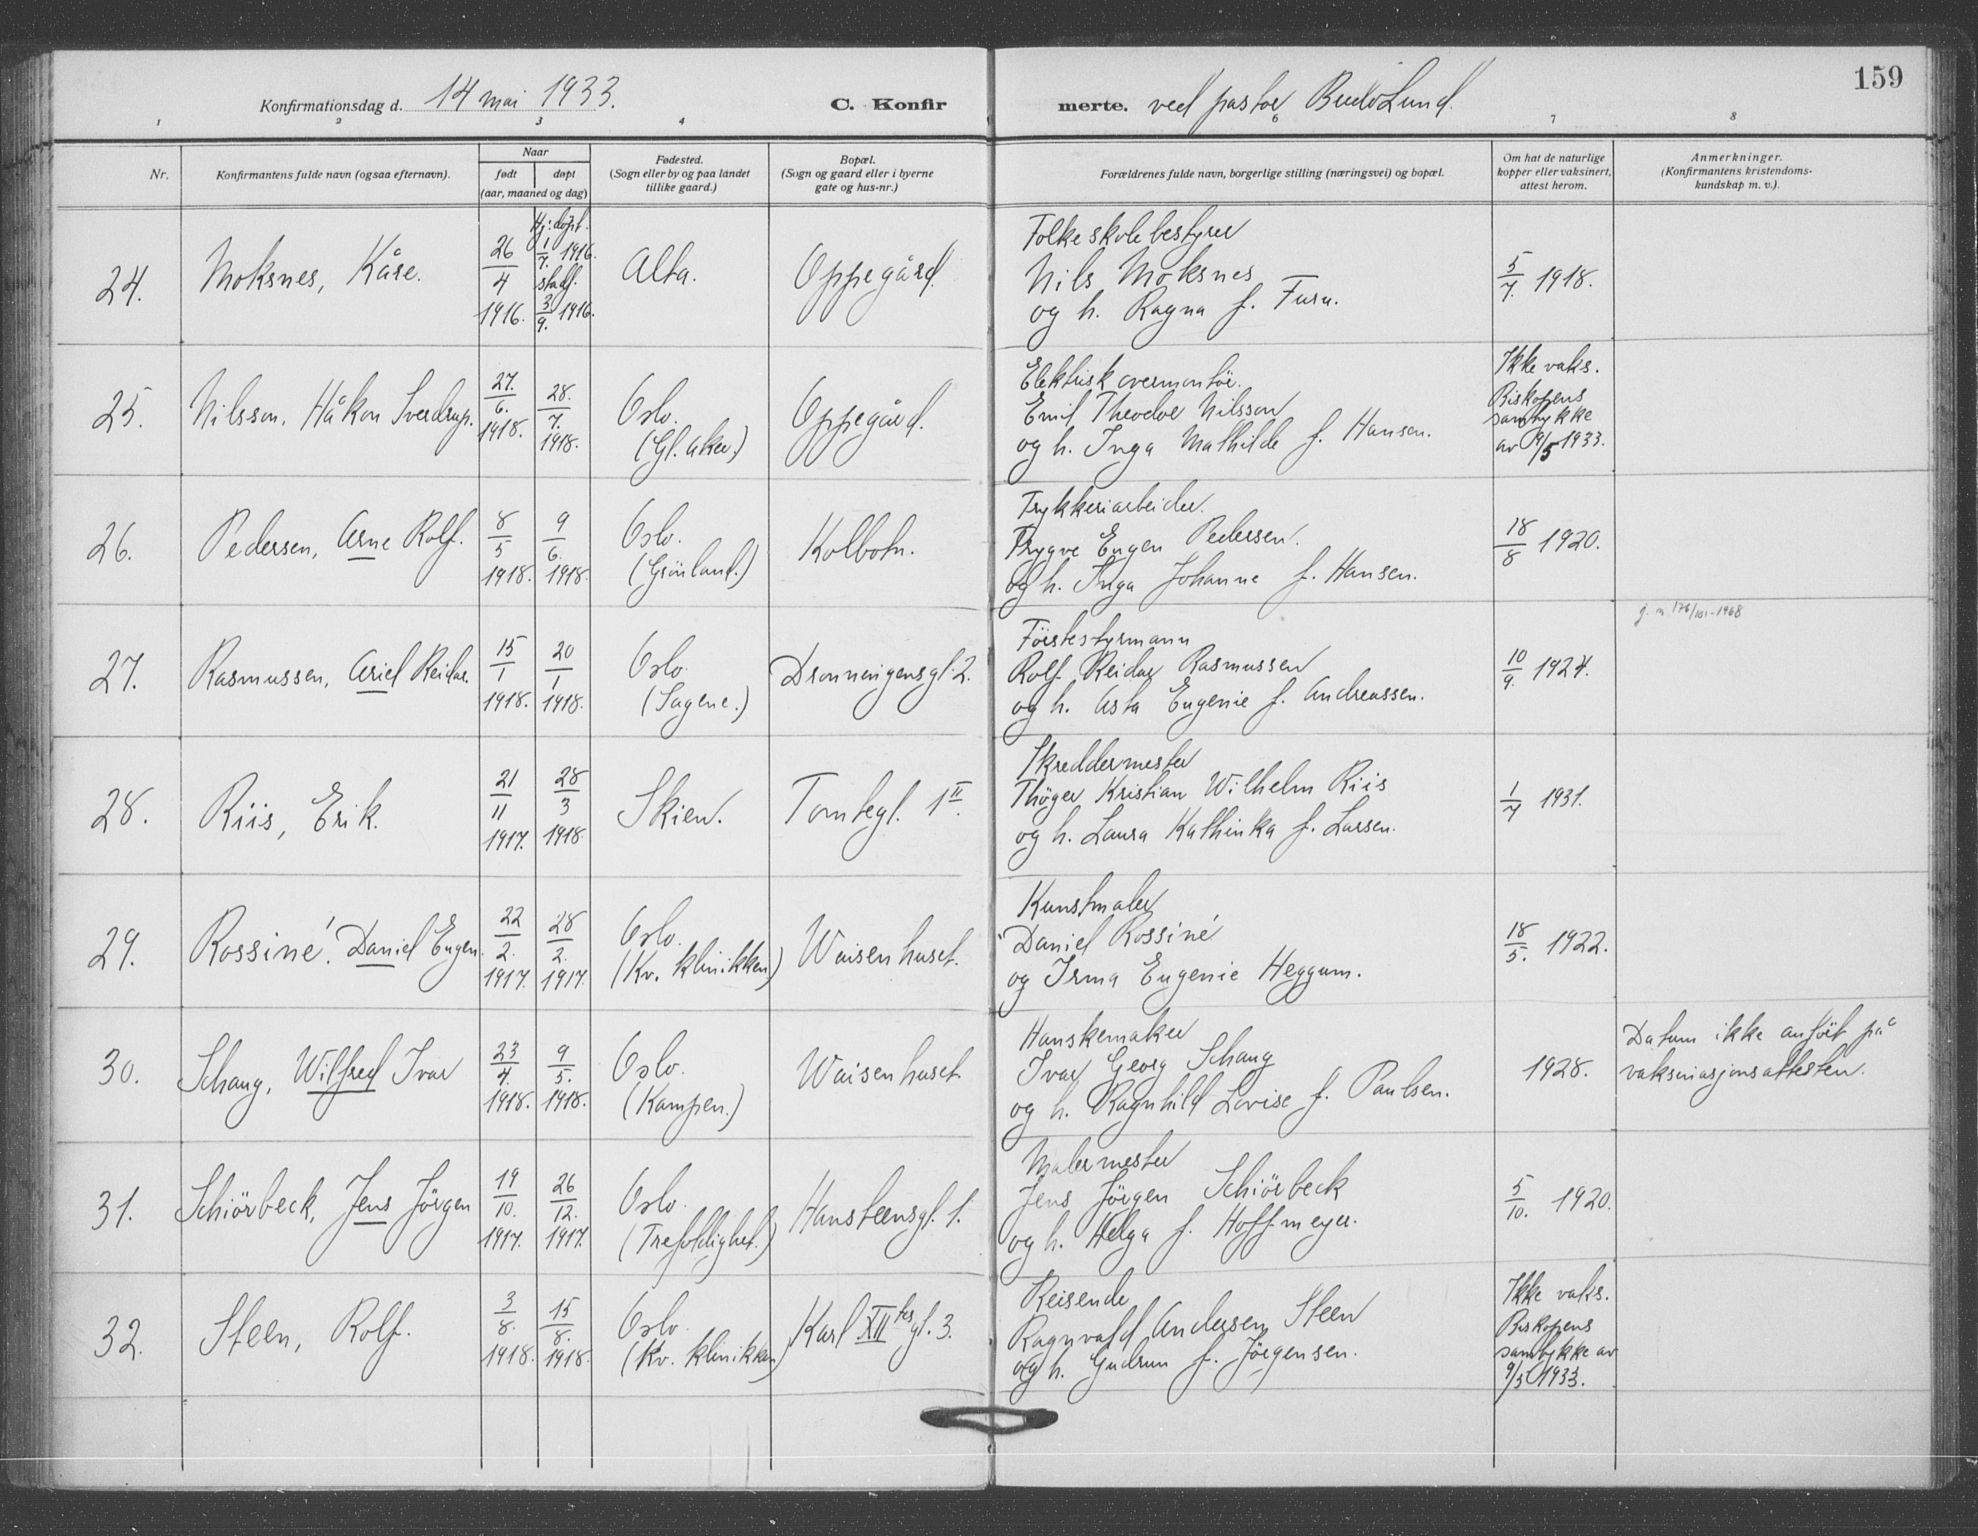 159
Konfirmationsdag d. 14 mai 1933.
C. Konfirmerte. ved pastor Lund.
1 2 3 4 6 7 8
Nr.
Konfirmantens fulde navn (ogsaa efternavn).
Naar
født
døpt
(aar, maaned og dag)
Fødested.
(Sogn eller by og paa landet
tillike gaard.)
Bopæl.
(Sogn og gaard eller i byerne
gate og hus-nr.)
Forældrenes fulde navn, borgerlige stilling (næringsvei) og bopæl.
Om hat de naturlige
kopper eller vaksinert,
attest herom.
Anmerkninger.
(Konfirmantens kristendoms-
kundskap m. v.).
24.
Moksnes, Kåre.
26/4
1916.
Hj: døpt.
1/7. 1916.
stadf.
3/9. 1916.
Alta.
Oppegård.
Folkeskolebestyrer
Nils Moksnes
og h. Ragna f. Furu.
5/7. 1918.
25.
Nilsson, Håkon Sverdrup.
27./6.
1918.
28./7.
1918.
Oslo.
(Gl. aker.)
Oppegård.
Elektrisk overmontör.
Emil Theodor Nilsson
og h. Inga Mathilde f. Hansen.
Ikke vaks.
Biskopens
samtykke
av 9/5 1933.
26.
Pedersen, Arne Rolf.
8/5
1918.
9/6.
1918.
Oslo.
(Grönland.)
Kolbotn.
Trykkeriarbeider.
Trygve Eugen Pedersen.
og h. Inga Johanne f. Hansen.
18/8 1920.
27.
Rasmussen, Ariel Reidar.
15/1
1918.
20/1
1918.
Oslo
(Sagene.)
Dronningensgt. 2.
Förstestyrmann
Rolf Reidar Rasmussen
og h. Asta Eugenie f. Andreassen.
10/9. 1924.
28.
Riis, Erik.
21/11
1917.
28/3
1918
Skien.
Tomtegt. 1 II.
Skreddermester
Thøger Kristian Wilhelm Riis
og h. Laura Kathinka f. Larsen.
1/7 1931.
29.
Rossiné, Daniel Eugen.
22/2.
1917.
28/2.
1917.
Oslo.
(Kv. klinikken)
Waisenhuset.
Kunstmaler
Daniel Rossiné
og Irma Eugenie Heggum.
18/5. 1922.
30.
Schang, Wilfred Ivar
23/4.
1918.
9/5.
1918.
Oslo.
(Kampen.)
Waisenhuset.
Hanskemaker
Ivar Georg Schang
og h. Ragnhild Lovise f. Paulsen.
1928.
Datum ikke anfört på
vaksinasjonsattesten.
31.
Schiörbeck, Jens Jörgen
19/10.
1917.
26/12.
1917.
Oslo.
(Trefoldighet.)
Hansteensgt. 1.
Malermester
Jens Jörgen Schiörbeck
og h. Helga f. Hoffmeyer.
5/10. 1920.
32.
Steen, Rolf.
3/8.
1918.
15/8.
1918.
Oslo.
(Kv. klinikken)
Karl XIItes gt. 3.
Reisende
Ragnvald Andersen Steen
og h. Gudrun f. Jörgensen.
Ikke vaks.
Biskopens
samtykke av
9/5 1933.